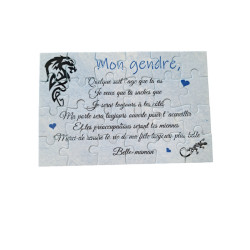 Mon gendre,
Quelque soit l'age que tu as
Je veux que tu saches que
Je serai toujours à tes côtés
Ma porte sera toujours ouverte pour t'accueillir
Et tes préoccupations seront les miennes
Merci de rendre la vie de ma fille toujours plus belle
Belle-maman